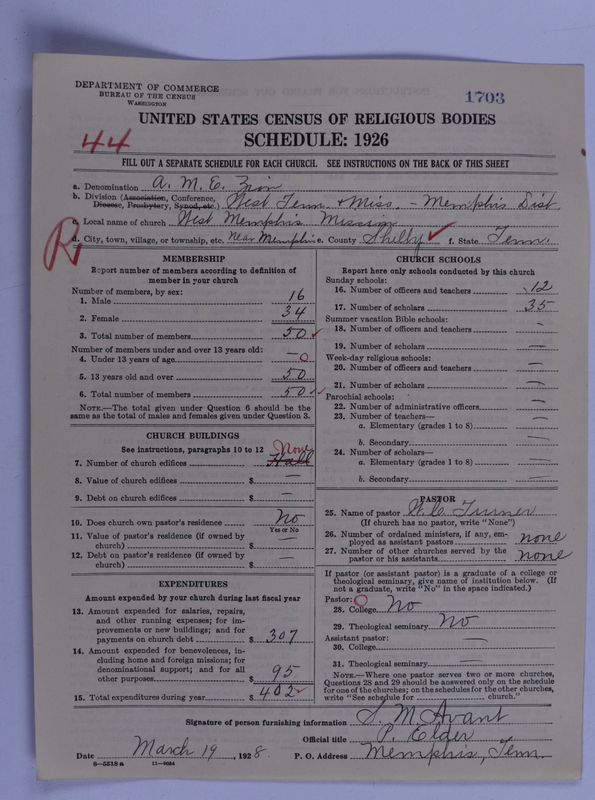 DEPARTMENT OF COMMERCE
BUREAU OF THE CENSUS
WASHINGTON
1703
UNITED STATES CENSUS OF RELIGIOUS BODIES
44
SCHEDULE: 1926
FILL OUT A SEPARATE SCHEDULE FOR EACH CHURCH. SEE INSTRUCTIONS ON THE BACK OF THIS SHEET
a. Denomination A. M. E. Zion
b. Division (Association, Conference, Diocese, Presbytery, Synod, etc.) West Tenn. & Miss. - Memphis Dist
c. Local name of church West Memphis Mission
R
d. City, town, village, or township, etc. Near Memphis e. County Shelby f. State Tenn.
MEMBERSHIP
Report number of members according to definition of member in your church
Number of members, by sex:
1. Male 16
2. Female 34
3. Total number of members 50
Number of members under and over 13 years old:
4. Under 13 years of age — 0
5. 13 years old and over 50
6. Total number of members 50
NOTE.—The total given under Question 6 should be the same as the total of males and females given under Question 3.
CHURCH BUILDINGS
See instructions, paragraphs 10 to 12 None
7. Number of church edifices Hall
8. Value of church edifices $ —
9. Debt on church edifices $ —
10. Does church own pastor's residence No
Yes or No
11. Value of pastor's residence (if owned by church) $ —
12. Debt on pastor's residence (if owned by church) $ —
EXPENDITURES
Amount expended by your church during last fiscal year
13. Amount expended for salaries, repairs, and other running expenses; for improvements or new buildings; and for payments on church debt $ 307
14. Amount expended for benevolences, including home and foreign missions; for denominational support; and for all other purposes $ 95
15. Total expenditures during year $ 402
CHURCH SCHOOLS
Report here only schools conducted by this church
Sunday schools:
16. Number of officers and teachers 12
17. Number of scholars 35
Summer vacation Bible schools:
18. Number of officers and teachers —
19. Number of scholars —
Week-day religious schools:
20. Number of officers and teachers —
21. Number of scholars —
Parochial schools:
22. Number of administrative officers —
23. Number of teachers—
a. Elementary (grades 1 to 8) —
b. Secondary —
24. Number of scholars—
a. Elementary (grades 1 to 8) —
b. Secondary —
PASTOR
25. Name of pastor Turner
(If church has no pastor, write "None")
26. Number of ordained ministers, if any, employed as assistant pastors none
27. Number of other churches served by the pastor or his assistants none
If pastor (or assistant pastor) is a graduate of a college or theological seminary, give name of institution below. (If not a graduate, write "No" in the space indicated.)
Pastor: O
28. College No
29. Theological seminary No
Assistant pastor:
30. College —
31. Theological seminary —
NOTE.—Where one pastor serves two or more churches, Questions 28 and 29 should be answered only on the schedule for one of the churches; on the schedules for the other churches, write "See schedule for church."
Signature of person furnishing information S. M. Avant
Official title P. Elder
Date March 19, 1928. P. O. Address Memphis, Tenn.
8—5518 a 11—9034